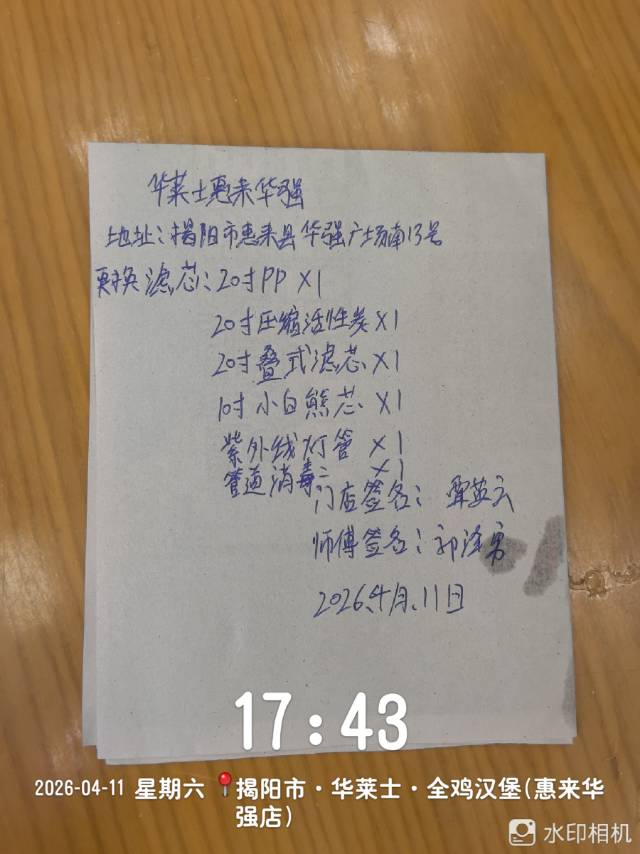 华莱士惠来华强
地址:揭阳市惠来县华强广场南13号
更换滤芯:20寸PP X1
20寸压缩活性炭X1
20寸叠式滤芯X1
10寸小白熊芯 X1
紫外线灯管 X1
管道消毒 X1
门店签名:
师傅签名:郭泽勇
2026.4月.11日
17:43
2026-04-11 星期六 揭阳市·华莱士·全鸡汉堡(惠来华
强店)
水印相机